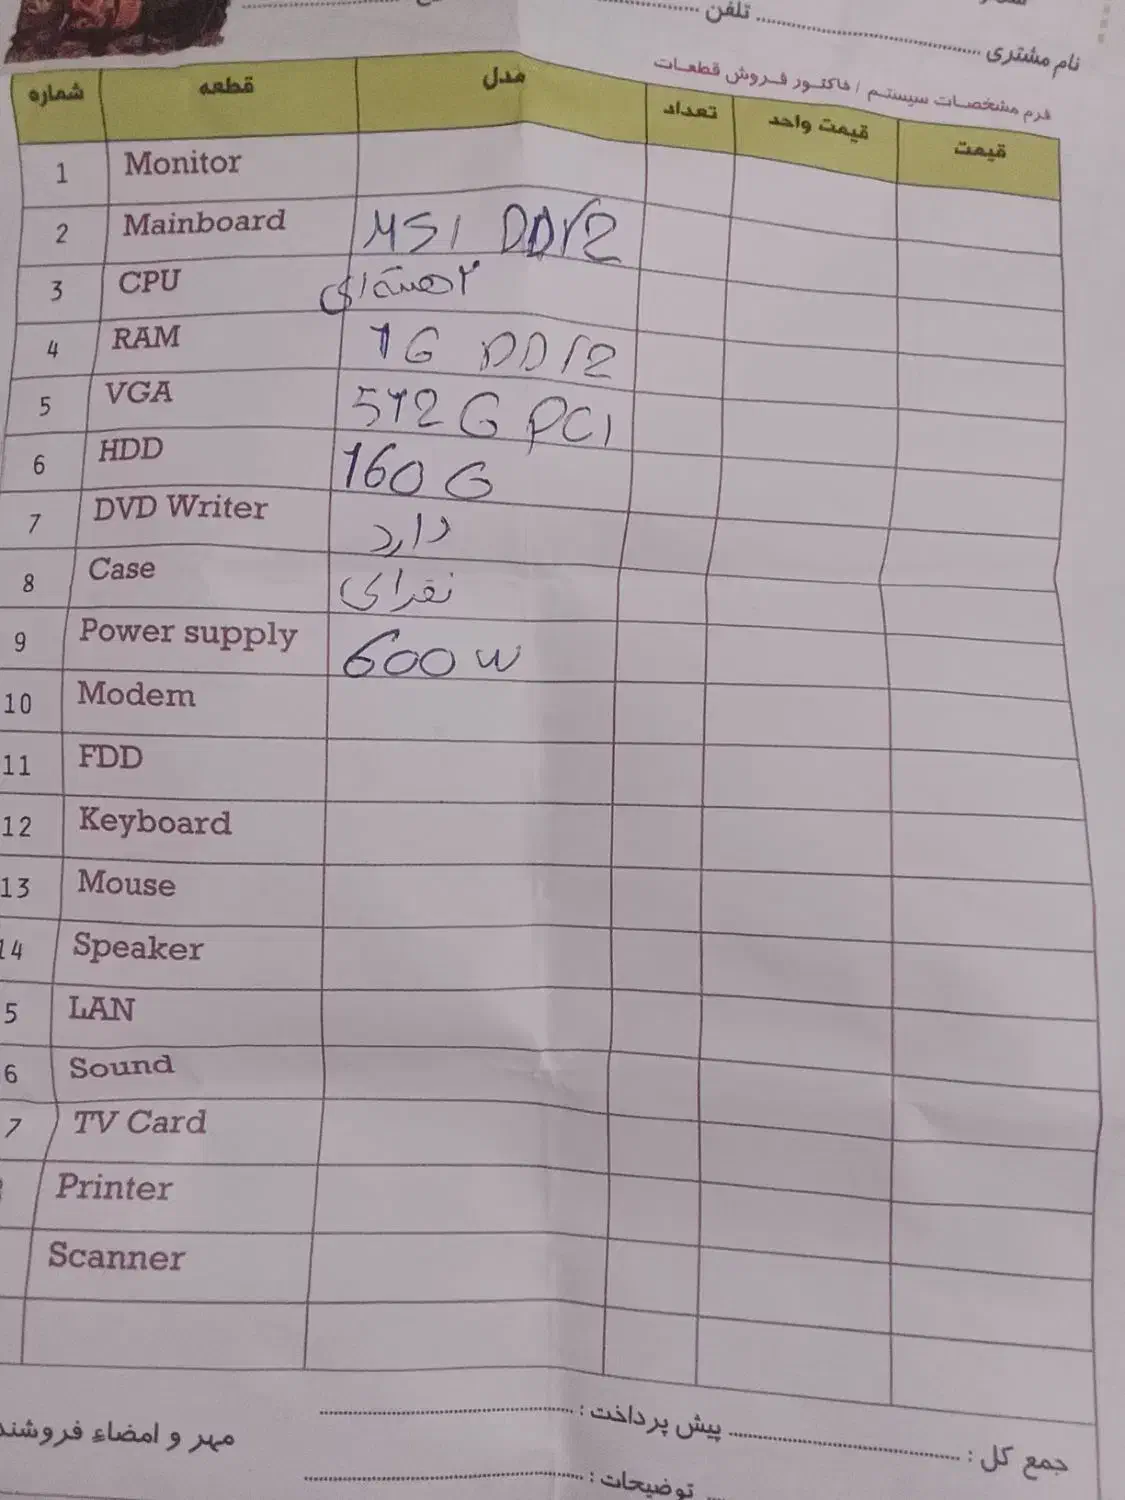 تلفن
نام مشتری
فرم مشخصات سیستم / فاکتور فروش قطعات
شماره قطعه مدل تعداد قیمت واحد قیمت
1 Monitor
2 Mainboard MSI DDR2
3 CPU ۲ هسته ای
4 RAM 1G DDR2
5 VGA 512 G PCI
6 HDD 160 G
7 DVD Writer دارد
8 Case نقرای
9 Power supply 600 W
10 Modem
11 FDD
12 Keyboard
13 Mouse
14 Speaker
5 LAN
6 Sound
7 TV Card
Printer
Scanner
جمع کل : پیش پرداخت :
مهر و امضاء فروشند
توضیحات :